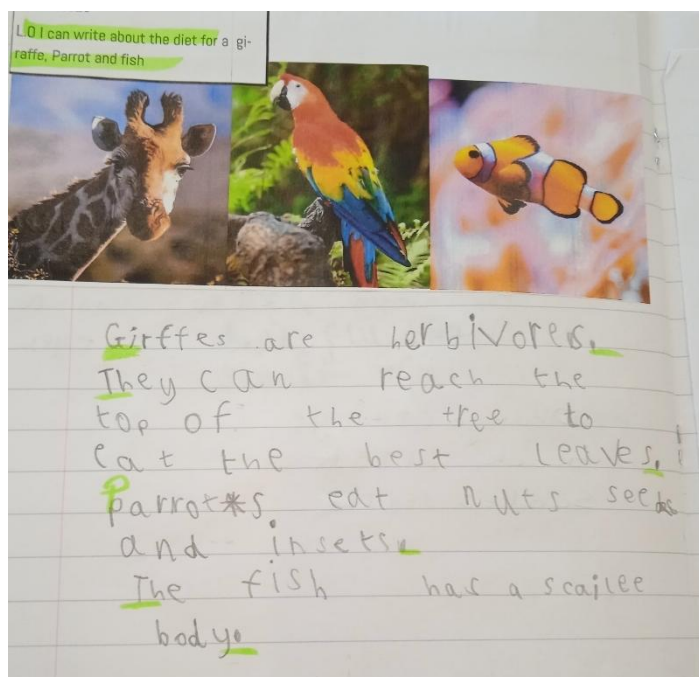 L.O I can write about the diet for a gi-
raffe, Parrot and fish
Girffes are herbivores.
They can reach the
top of the tree to
eat the best leaves.
parrots eat nuts seeds
and insets.
The fish has a scailee
body.